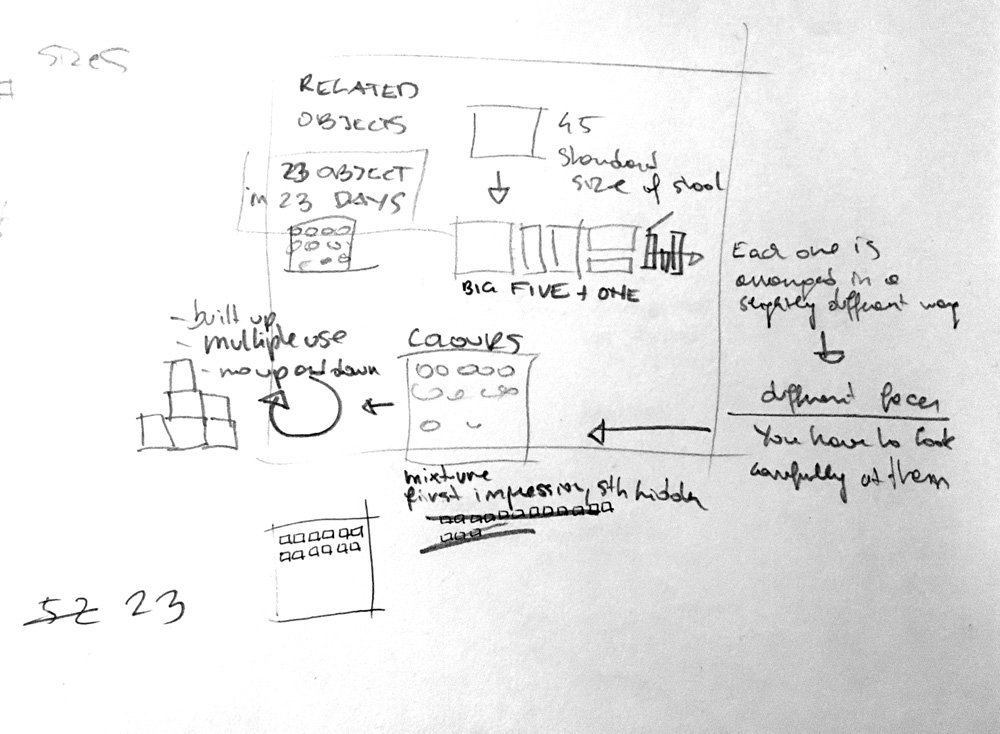 sizes
RELATED
OBJECTS
23 OBJECT
in 23 DAYS
45
standard
size of stool
BIG FIVE + ONE
Each one is
arranged in a
slightly different way
different faces
You have to look
carefully at them
- built up
- multiple use
- no up and down
COLOURS
mixture
first impression, sth hidden
52 23